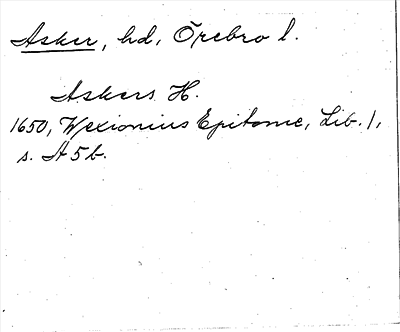 Asker, hd, Örebro l.
Askers H.
1650, Wexionius Epitome, Lib. 1,
s. A 5 b.